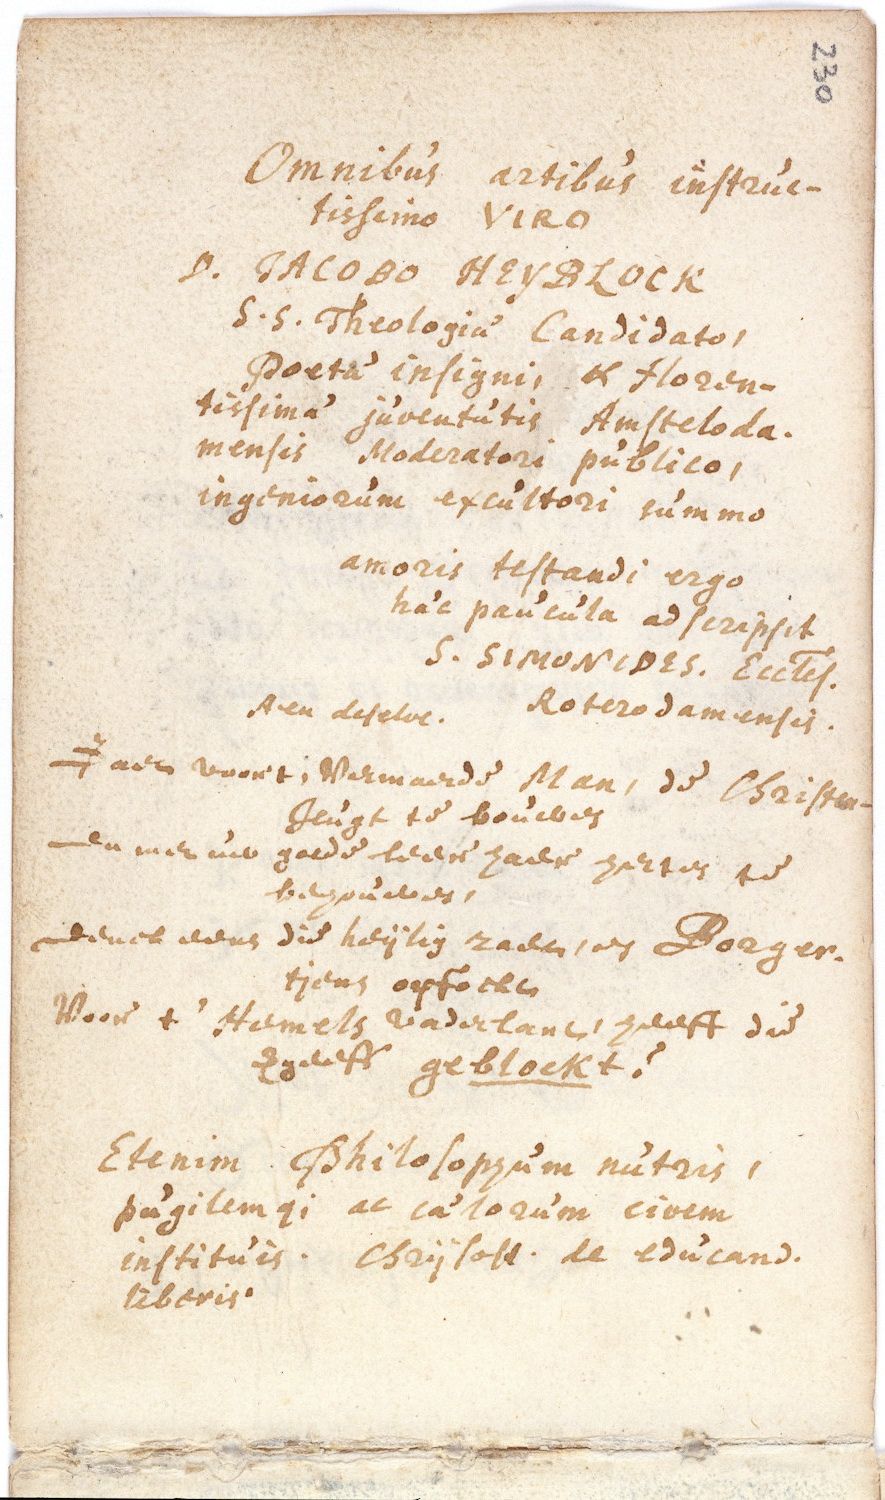 230
Omnibus artibus instruc-
tissimo VIRO
D. IACOBO HEYBLOCK
S.S. Theologiæ Candidato,
Poetæ insigni, & floren-
tissimæ juventutis Amsteloda-
mensis Moderatori publico,
ingeniorum excultori summo
amoris testandi ergo
hæc paucula adscripsit
S. SIMONIDES. Eccles.
Roterodamensis.
Aen deselve.
Vaer voort, Vermaerde Man, de Christen-
Jeugt te bouwen
En met uw goede leer haer herten te
bedouwen,
Denck eens die heylig zaet, en Borger-
tjens opfockt
Voor t' Hemels vaderlant, heeft die
heeft geblockt?
Etenim Philosophum nutris,
pugilemq; ac cælorum civem
instituis. Chrÿsost. de educand.
liberis.